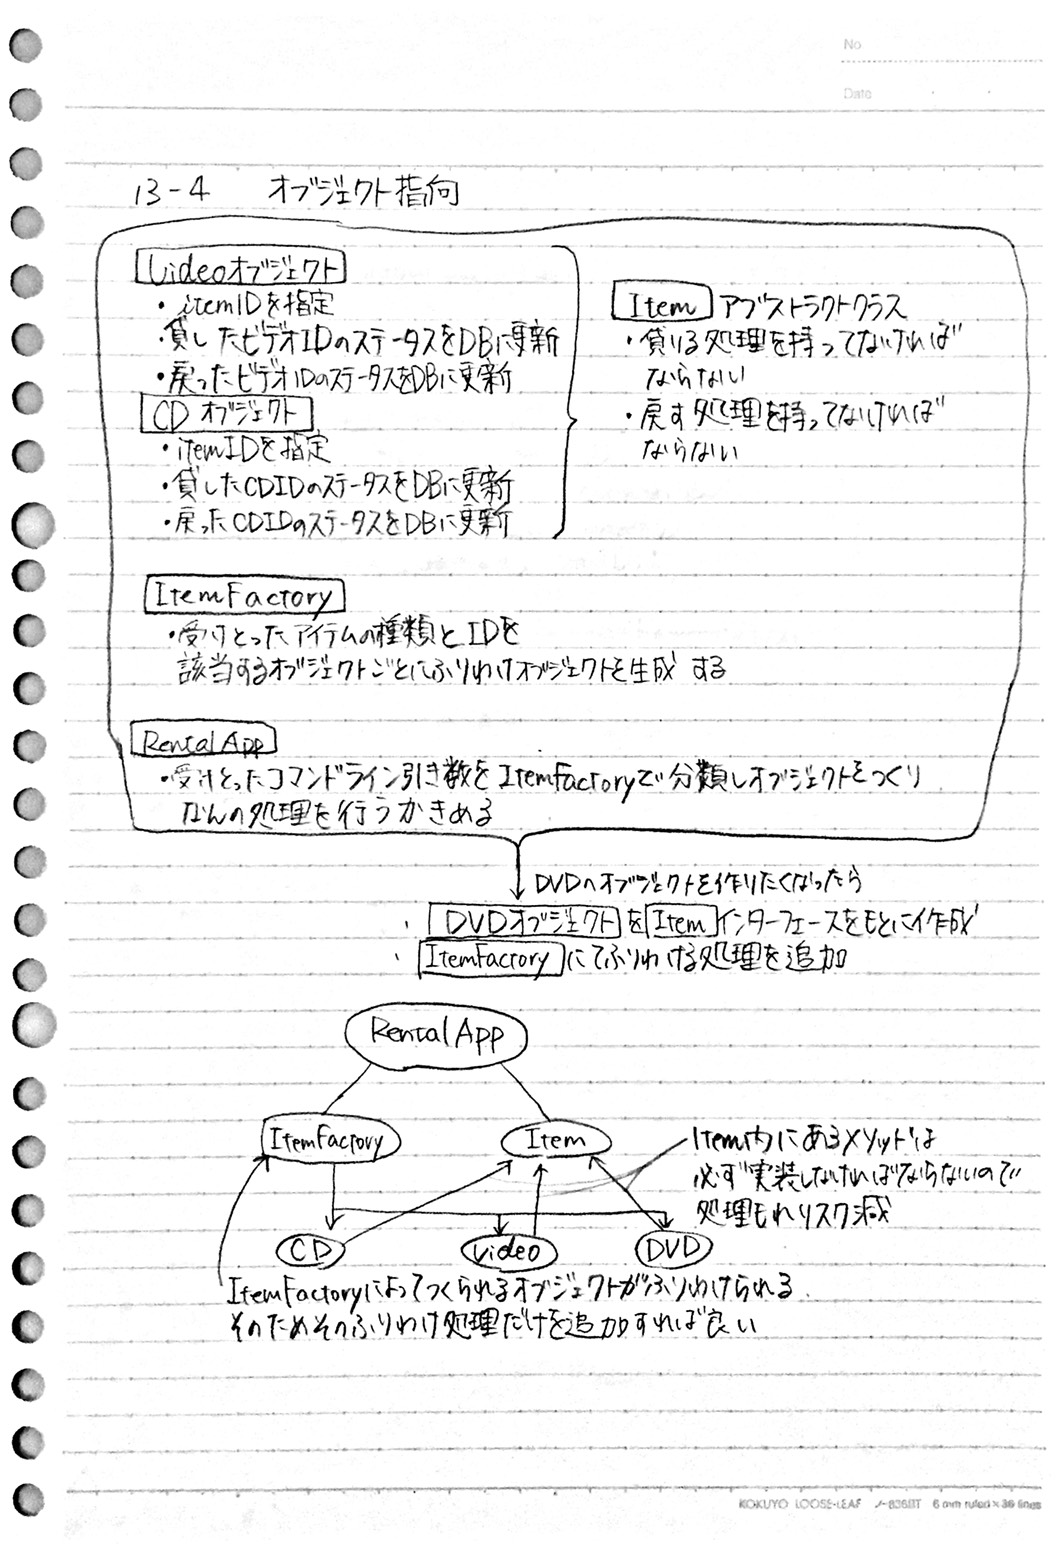 No
Date
13-4 オブジェクト指向
Videoオブジェクト
・itemIDを指定
・貸したビデオIDのステータスをDBに更新
・戻ったビデオIDのステータスをDBに更新
CDオブジェクト
・itemIDを指定
・貸したCDIDのステータスをDBに更新
・戻ったCDIDのステータスをDBに更新
Item アブストラクトクラス
・借りる処理を持ってなければ
ならない
・戻す処理を持ってなければ
ならない
ItemFactory
・受けとったアイテムの種類とIDを
該当するオブジェクトごとにふりわけオブジェクトを生成する
RentalApp
・受けとったコマンドライン引き数をItemFactoryで分類しオブジェクトをつくり
なんの処理を行うかきめる
DVDのオブジェクトを作りたくなったら
・DVDオブジェクトをItemインターフェースをもとに作成
・ItemFactoryにてふりわける処理を追加
RentalApp
ItemFactory
Item
Item内にあるメソッドは
必ず実装しなければならないので
処理もれリスク減
CD
Video
DVD
ItemFactoryによってつくられるオブジェクトがふりわけられる
そのためそのふりわけ処理だけを追加すれば良い
KOKUYO LOOSE-LEAF ノ-836BT 6mm ruled×36 lines